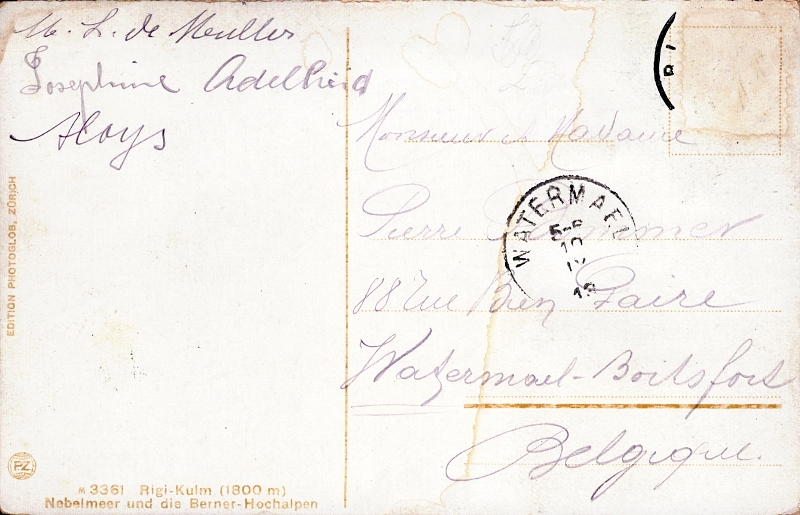 M. L. de Meuller
Josephine Adelheid
Aloys
Monsieur et Madame
Pierre
88 rue Bien Faire
Watermael-Boitsfort
Belgique.
WATERMAEL
5-6
10
IX
EDITION PHOTOGLOB, ZÜRICH
PZ
3361 Rigi-Kulm (1800 m)
Nebelmeer und die Berner-Hochalpen